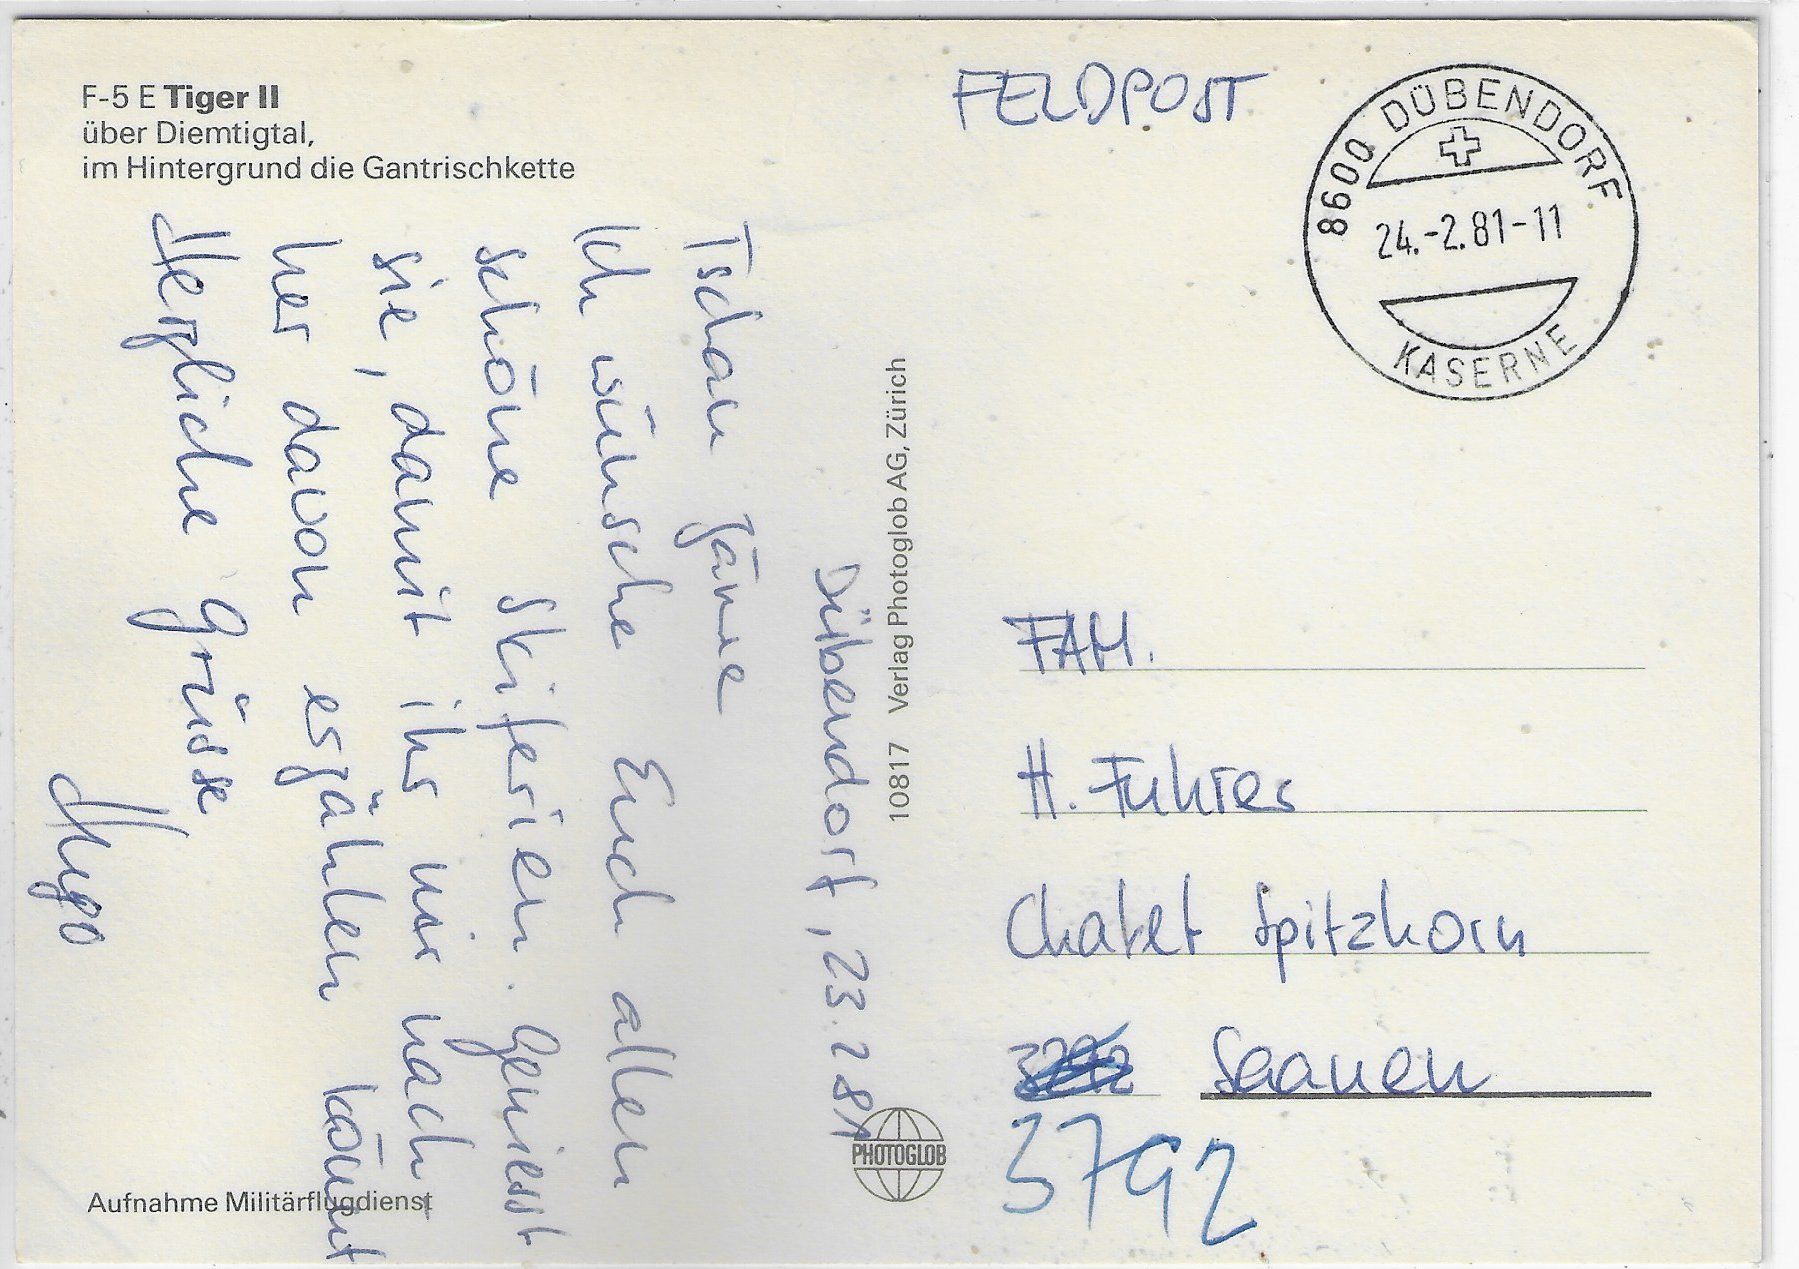 F-5 E Tiger II
über Diemtigtal,
im Hintergrund die Gantrischkette
FELDPOST
8600 DÜBENDORF
24.-2.81-11
KASERNE
Dübendorf, 23.2 81
Tschau
Ich wünsche Euch allen
schöne Skiferien. Geniesst
sie, damit ihr mir nach
her davon erzählen könnt
Herzliche Grüsse
Hugo
10817 Verlag Photoglob AG, Zürich
FAM.
H. Fuhrer
Chalet Spitzhorn
Saanen
3792
PHOTOGLOB
Aufnahme Militärflugdienst